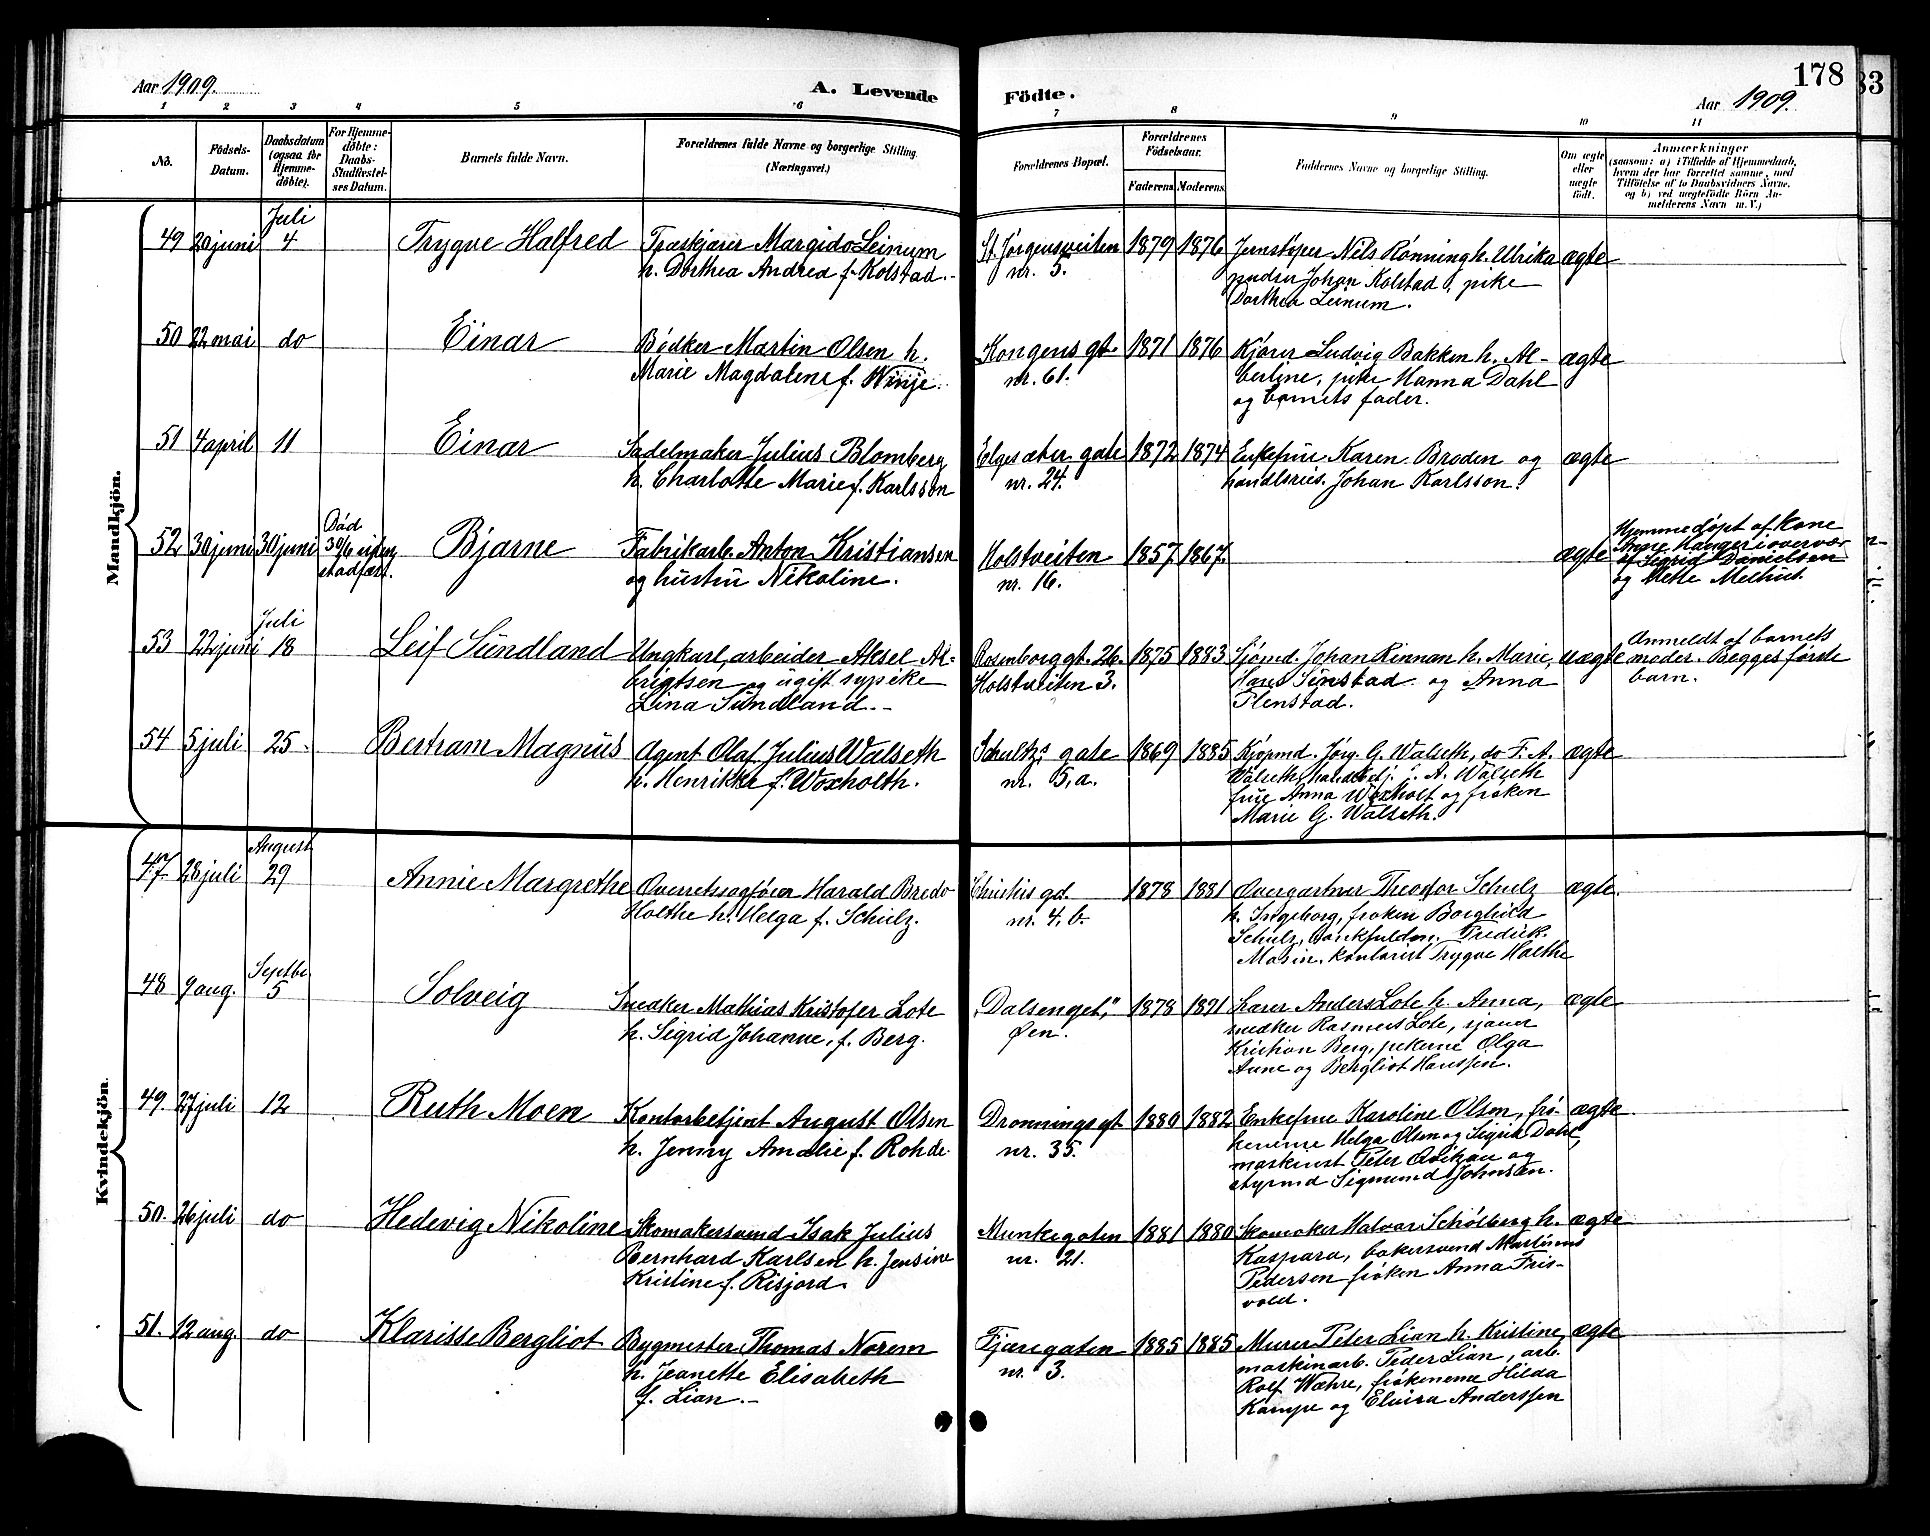 Aar 1909.
A. Levende
Födte.
Aar 1909.
178
83
1 2 3 4 5 6 7 8 9 10 11
No.
Födsels-
Datum.
Daabsdatum
(ogsaa for
Hjemme-
döbte).
For Hjemme-
döbte:
Daabs-
Stadfæstel-
ses Datum.
Barnets fulde Navn.
Forældrenes fulde Navne og borgerlige Stilling.
(Næringsvei.)
Forældrenes Bopæl.
Forældrenes
Födselsaar.
Faderens.
Moderens.
Faddernes Navne og borgerlige Stilling.
Om ægte
eller
uægte
födt.
Anmærkninger
(saasom: a) i Tilfælde af Hjemmedaab,
hvem der har forrettet samme, med
Tilföielse af to Daabsvidners Navne,
og b) ved uegtefödte Börn An-
melderens Navn m. V.)
Mandkjön.
49 20 juni
Juli
4
Trygve Halfred
Træskjærer Margido Leinum
h. Dorthea Andrea f. Kolstad.
St. Jørgensveiten
nr. 5.
1879 1876
Jernstøper Nils Rønning h. Ulrika
Johan Kolstad, pike
Dorthea Leinum.
ægte
50 22 mai do
Einar
Bødker Martin Olsen h.
Marie Magdalene f. Winje.
Kongens gt.
nr. 61.
1871 1876
Kjører Ludvig Bakken h. Al-
bertine, pike Hanna Dahl
og barnets fader.
ægte
51 4 april 11
Einar
Sadelmaker Julius Blomberg
h. Charlotte Marie f. Karlsson
Elgesæter gate
nr. 24.
1872 1874
Enkefrue Karen Broden og
handlsreis. Johan Karlsson.
ægte
52 30 juni 30 juni
Død
30/6 uden
stadfæst.
Bjarne
Fabrikarb. Anton Kristiansen
og hustru Nikoline.
Holstveiten
nr. 16.
1857 1867.
ægte
Hjemmedøpt af Kone
Hanger i overvær
af Sigrid Danielsen
og Mette Melhus.
53 22 juni
Juli
18
Leif Sundland
Ungkarl, arbeider Aksel Al-
brigtsen og ugift sypike
Lina Sundland.
Rosenborg gt. 26.
Holstveiten 3.
1875 1883
Sjømd. Johan Rinnan h. Marie,
Hans Tinstad og Anna
Plenstad.
uægte
Anmeldt af barnets
moder. Begges første
barn.
54 5 juli 25
Bertram Magnus
Agent Olaf Julius Walseth
h. Henrikke f. Woxholth.
Schultz's gate
nr. 5, a.
1869 1885
Kjøpmd. Jørg. G. Walseth, do F. A.
Walseth, handelsbetj. A. Walseth
frue Anna Woxholt og frøken
Marie G. Walseth.
ægte
Kvindekjön.
47 28 juli
August
29
Annie Margrethe
Overretssagfører Harald Bredo
Holthe h. Helga f. Schulz.
Christies gd.
nr. 4. b.
1878 1881
Overgartner Theodor Schulz
h. Ingeborg, frøken Borghild
Schulz, bankfuldm. Fredrik
Masin, kontorist Trygve Holthe
ægte.
48 9 aug.
Septbr
5
Solveig
Snedker Mathias Kristofer Lote
h. Sigrid Johanne, f. Berg.
"Dalsenget,"
Øen.
1878 1871
Lærer Anders Lote h. Anna,
snedker Rasmus Lote, sjauer
Kristian Berg, pikerne Olga
Aune og Bergliot Hanssen.
ægte
49. 27 juli 12
Ruth Moen
Kontorbetjent August Olsen
h. Jenny Amalie f. Rohde.
Dronningsgt
nr. 35.
1880 1882
Enkefrue Karoline Olsen, frø-
kenerne Helga Olsen og Sigrid Dahl,
maskinist Peter Kvikau og
styrmd Sigmund Johnsen.
ægte
50. 26 juli do
Hedevig Nikoline
Skomakersvend Isak Julius
Bernhard Karlsen h. Jensine
Kristine f. Risjord.
Munkegaten
nr. 21.
1881 1880
Skomaker Halvar Schølberg h.
Kaspara, bakersvend Martinus
Pedersen frøken Anna Fris-
vold.
ægte
51. 12 aug. do
Klarisse Bergliot
Bygmester Thomas Norem
h. Jeanette Elisabeth
f. Lian.
Fjæregaten
nr. 3.
1885 1885
Murer Peter Lian h. Kristine,
maskinarb. Peder Lian, arb.
Rolf Wæhre, frøkenerne Hilda
Kampe og Elvira Anderssen
ægte